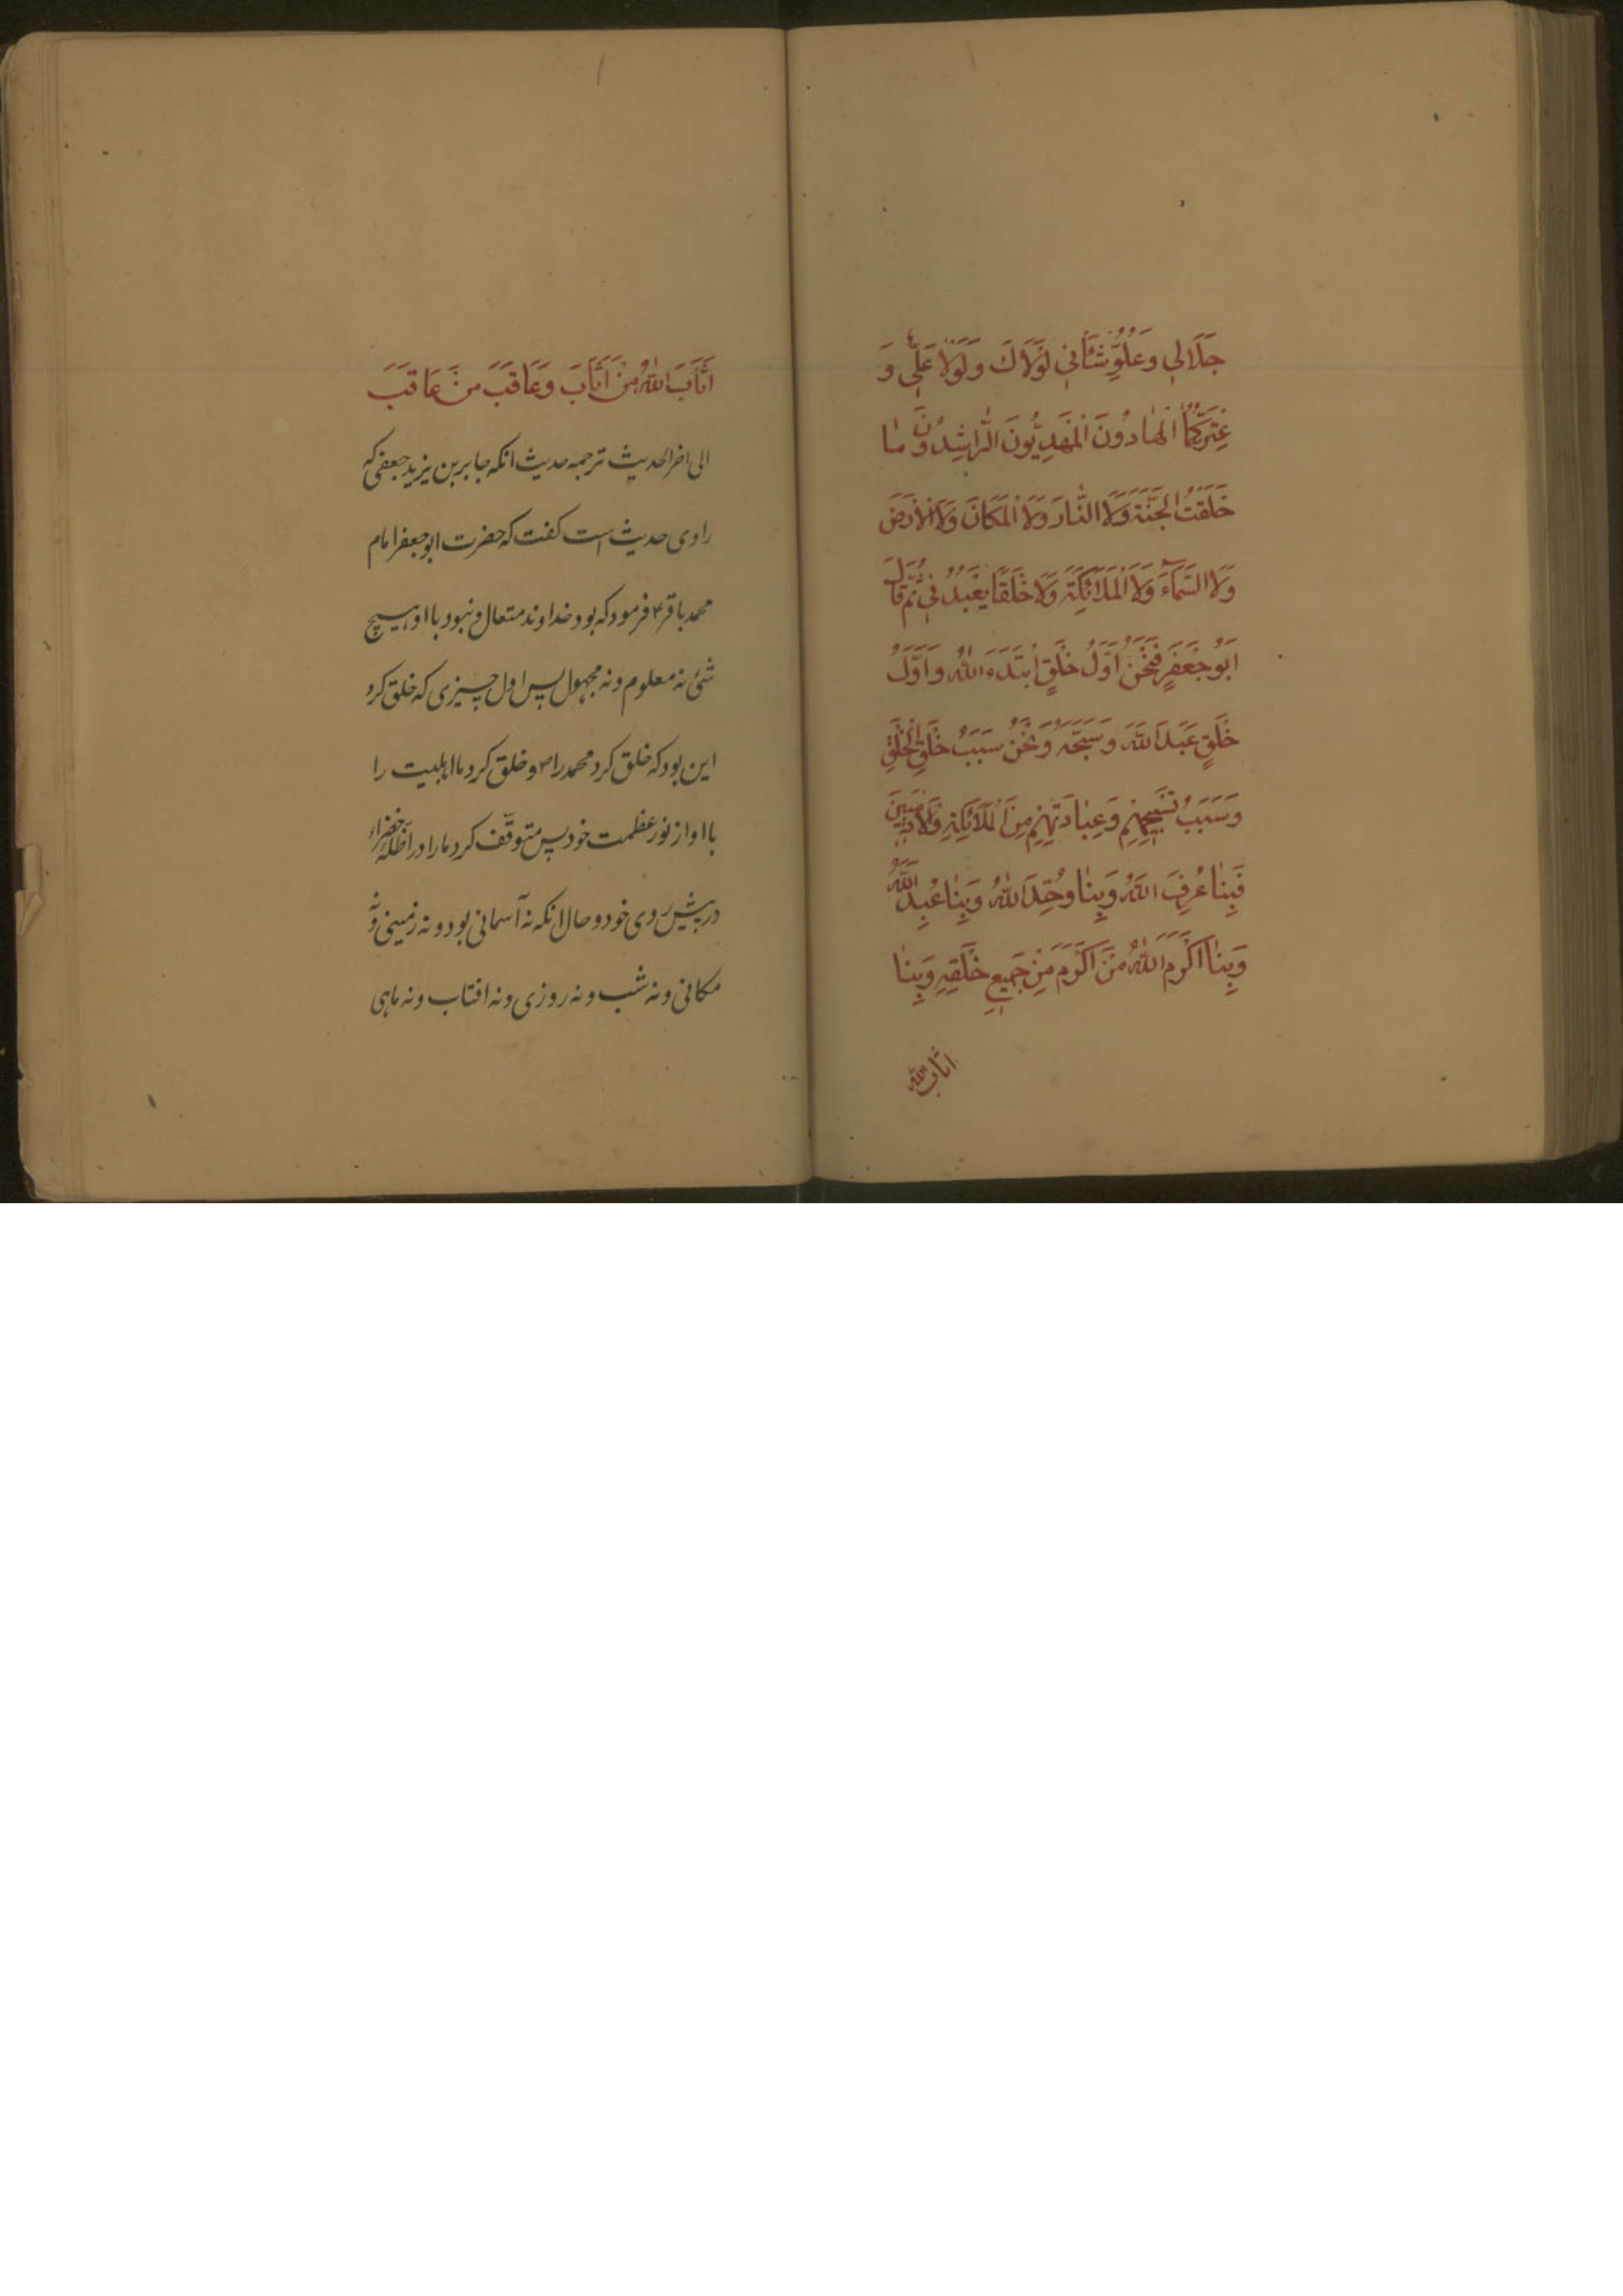 جَلَالِي وَعُلُوِّ شَأْنِي لَوْلَاكَ وَلَوْلَا عَلِيٌّ وَ
عِتْرَتُكُمَا الْهَادُونَ الْمَهْدِيُّونَ الرَّاشِدُونَ مَا
خَلَقْتُ الْجَنَّةَ وَلَا النَّارَ وَلَا الْمَكَانَ وَلَا الْأَرْضَ
وَلَا السَّمَآءَ وَلَا الْمَلَائِكَةَ وَلَا خَلْقًا يَعْبُدُنِي ثُمَّ قَالَ
اَبُو جَعْفَرٍ فَنَحْنُ اَوَّلُ خَلْقٍ ابْتَدَءَ اللهُ وَاَوَّلُ
خَلْقٍ عَبَدَ اللهَ وَسَبَّحَهُ وَنَحْنُ سَبَبُ خَلْقِ الْخَلْقِ
وَسَبَبُ تَسْبِيحِهِمْ وَعِبَادَتِهِمْ مِنَ الْمَلَائِكَةِ وَالْآدَمِيِّينَ
فَبِنَا عُرِفَ اللهُ وَبِنَا وُحِّدَ اللهُ وَبِنَا عُبِدَ اللهُ
وَبِنَا اَكْرَمَ اللهُ مَنْ اَكْرَمَ مِنْ جَمِيعِ خَلْقِهِ وَبِنَا
اثاب الله
اَثَابَ اللهُ مَنْ اَثَابَ وَعَاقَبَ مَنْ عَاقَبَ
الی اخر الحدیث ترجمه حدیث انکه جابر بن یزید جعفی که
راوی حدیث است کفت که حضرت ابو جعفر امام
محمد باقر ع فرمود که بود خداوند متعال و نبود با او هیچ
شئ نه معلوم و نه مجهول پس اول چیزی که خلق کرد
این بود که خلق کرد محمد را ص و خلق کرد ما اهلبیت را
با او از نور عظمت خود پس متوقّف کرد ما را در اظلّهٔ خضراء
در پیش روی خود و حال انکه نه آسمانی بود و نه زمینی و نه
مکانی و نه شب و نه روزی و نه افتاب و نه ماهی